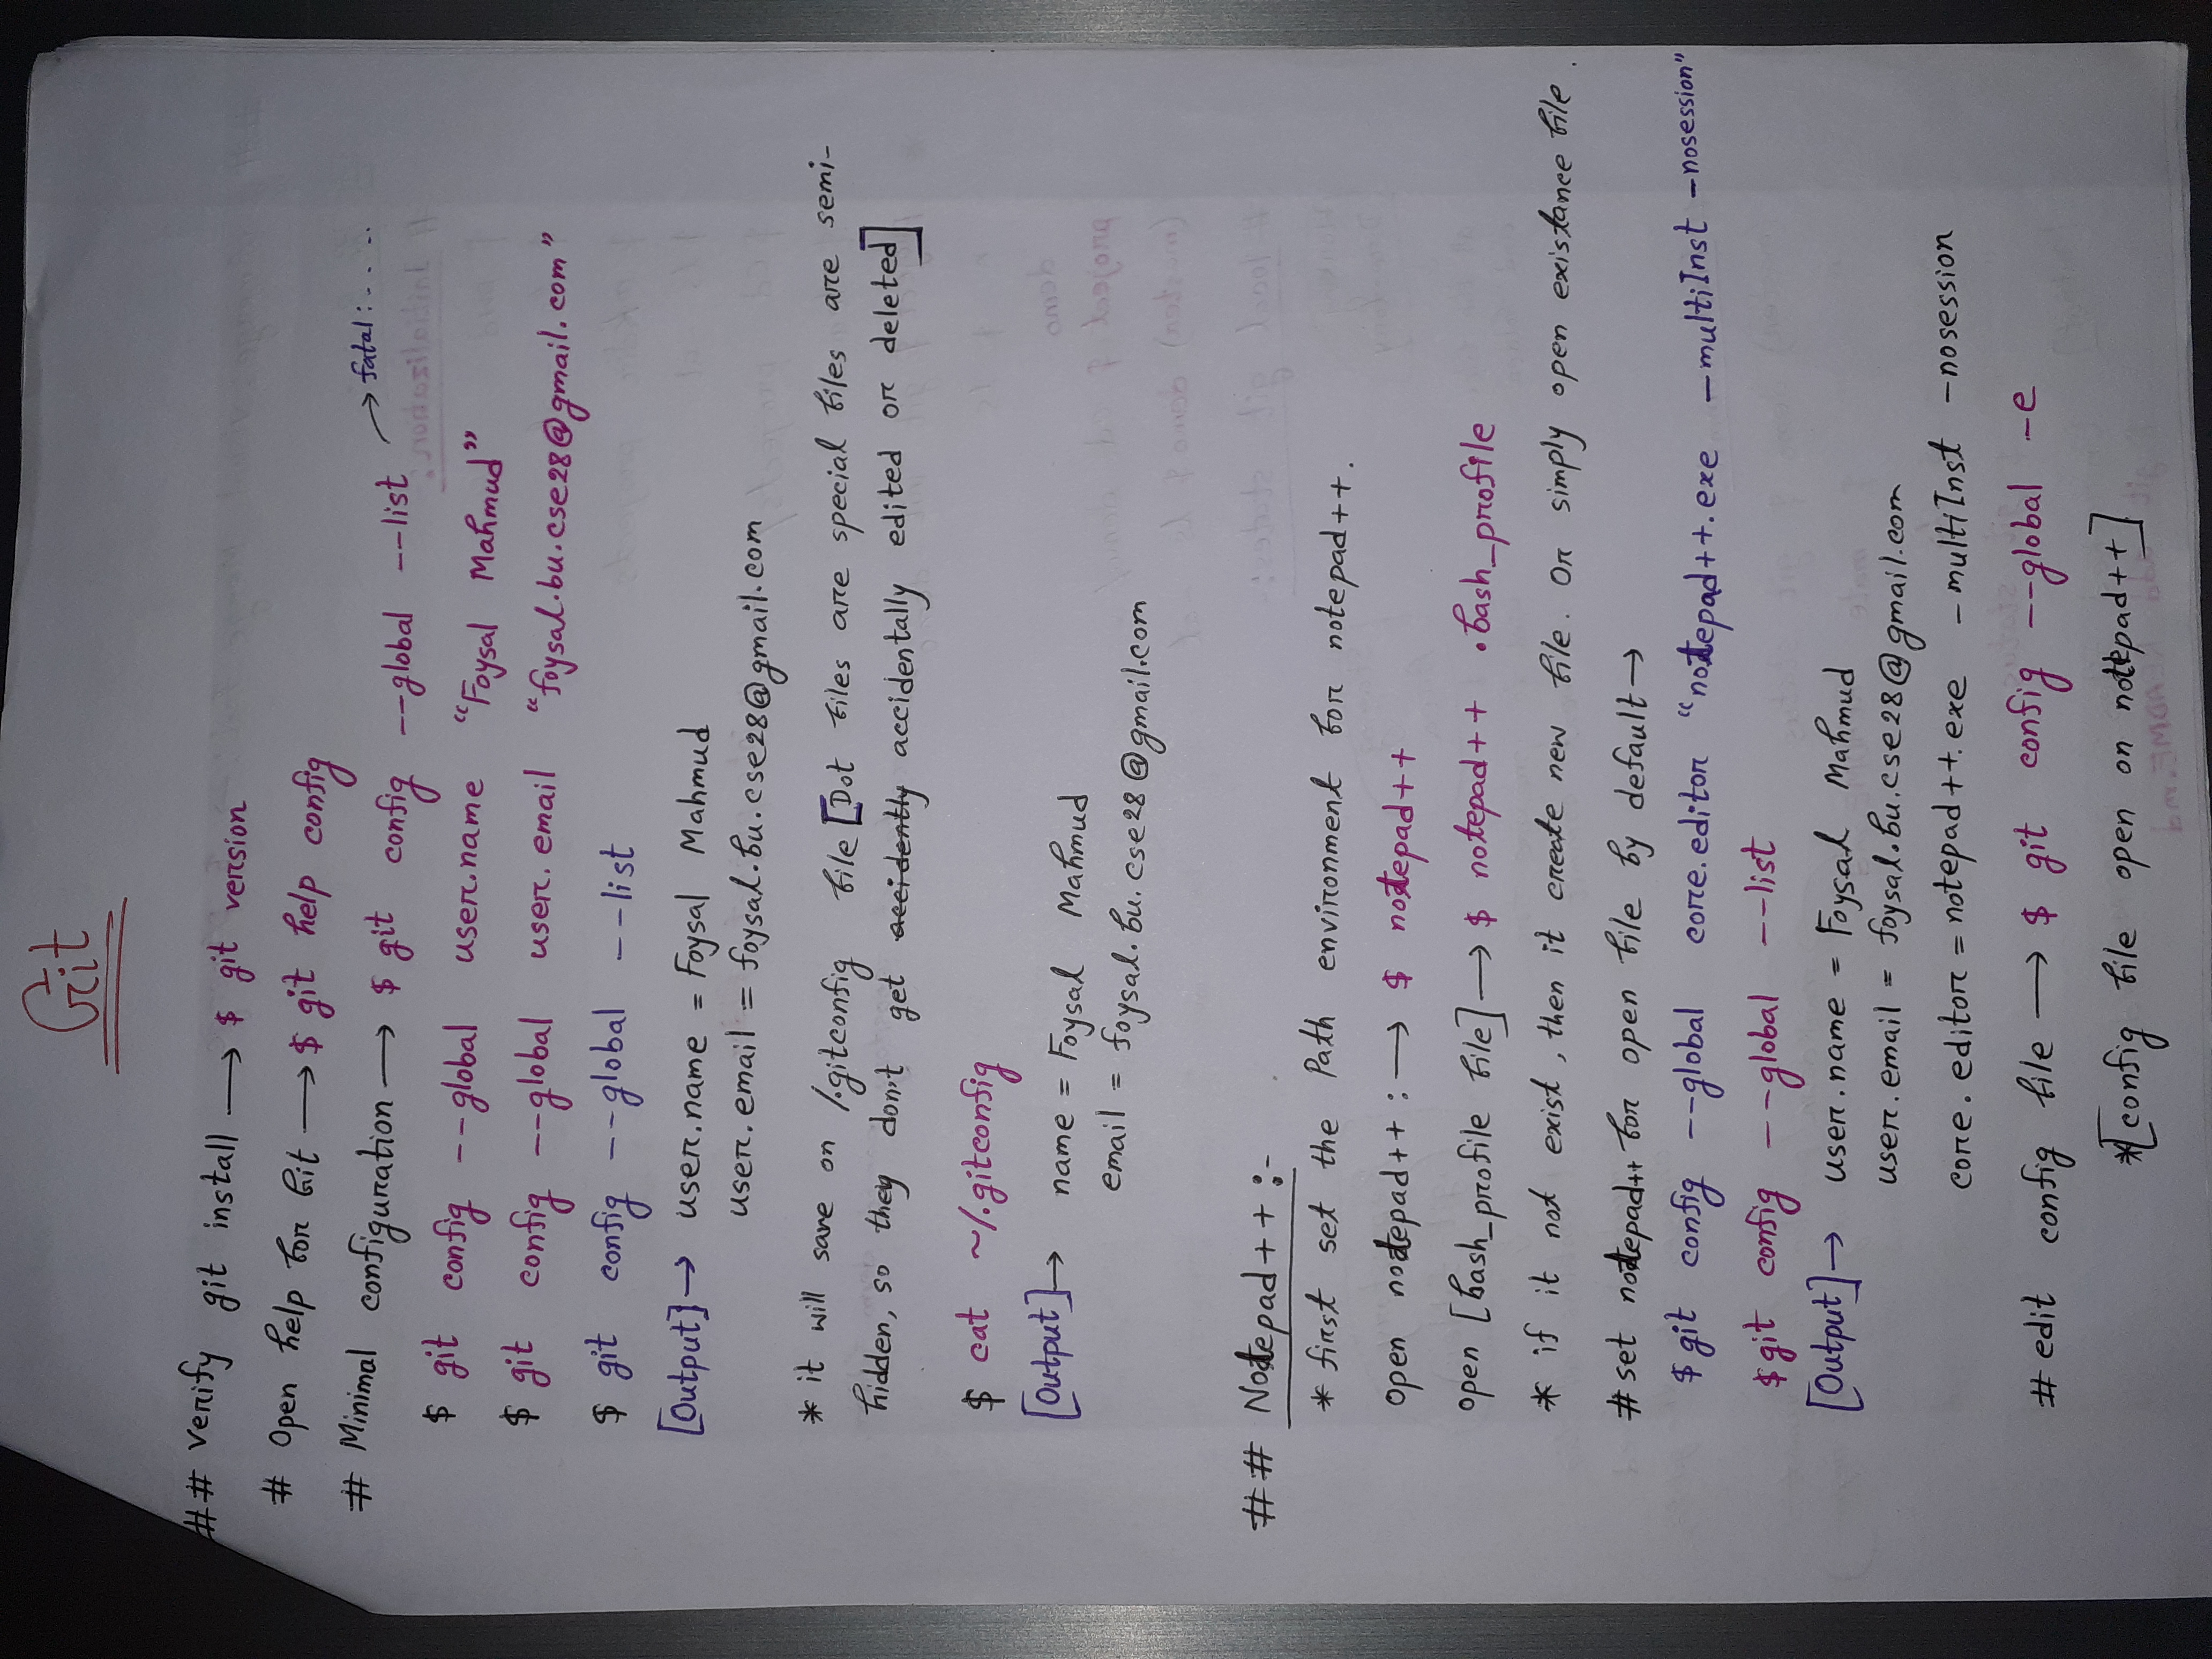 Git
## Verify git install → $ git version
# Open help for Git → $ git help config
# Minimal configuration → $ git config --global --list → fatal: . . . .
$ git config --global user.name "Foysal Mahmud"
$ git config --global user.email "foysal.bu.cse28@gmail.com"
$ git config --global --list
[Output] → user.name = Foysal Mahmud
user.email = foysal.bu.cse28@gmail.com
* it will save on /.gitconfig file [Dot files are special files are semi-
hidden, so they don't get accidently accidentally edited or deleted]
$ cat ~/.gitconfig
[Output] → name = Foysal Mahmud
email = foysal.bu.cse28@gmail.com
## Notepad++ :-
* first set the Path environment for notepad++.
open notepad++ : → $ notepad++
open [bash_profile file] → $ notepad++ .bash_profile
* if it not exist, then it create new file. or simply open existance file.
# set notepad++ for open file by default →
$ git config --global core.editor "notepad++.exe -multiInst -nosession"
$ git config --global --list
[Output] → user.name = Foysal Mahmud
user.email = foysal.bu.cse28@gmail.com
core.editor = notepad++.exe -multiInst -nosession
# edit config file → $ git config --global -e
*[config file open on notepad++]